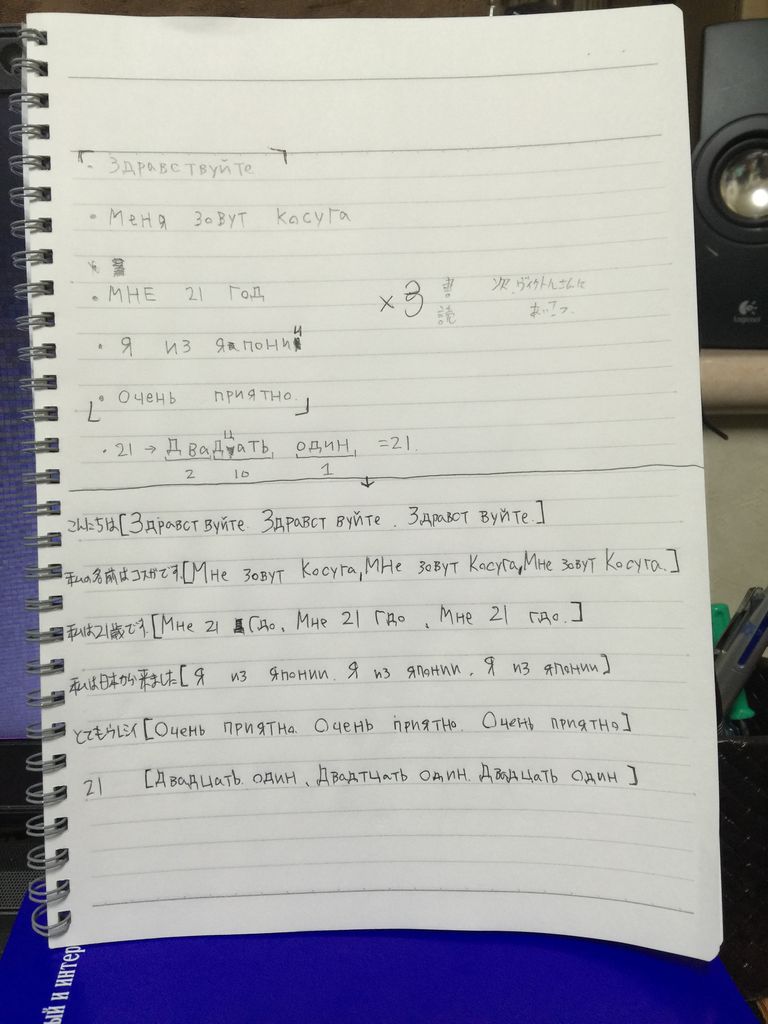 ・Здравствуйте
・Меня зовут Косуга
・МНЕ 21 ГОД
×3 書 次 ヴィクトルさんに
読
・Я ИЗ ЯПОНИИ
・Очень приятно.
・21 → Двадцать, один, =21.
2 10 1
↓
こんにちは[Здравствуйте. Здравствуйте. Здравствуйте.]
私の名前はコスガです.[Мне зовут Косуга, Мне зовут Косуга, Мне зовут Косуга.]
私は21歳です.[Мне 21 Гдо, Мне 21 Гдо, Мне 21 гдо.]
私は日本から来ました[Я из японии. Я из японии. Я из японии]
とてもウレシイ[Очень приятно. Очень приятно. Очень приятно]
21 [Двадцать. один, Двадтцать один. Двадцать один]
ый и интер
Logicool